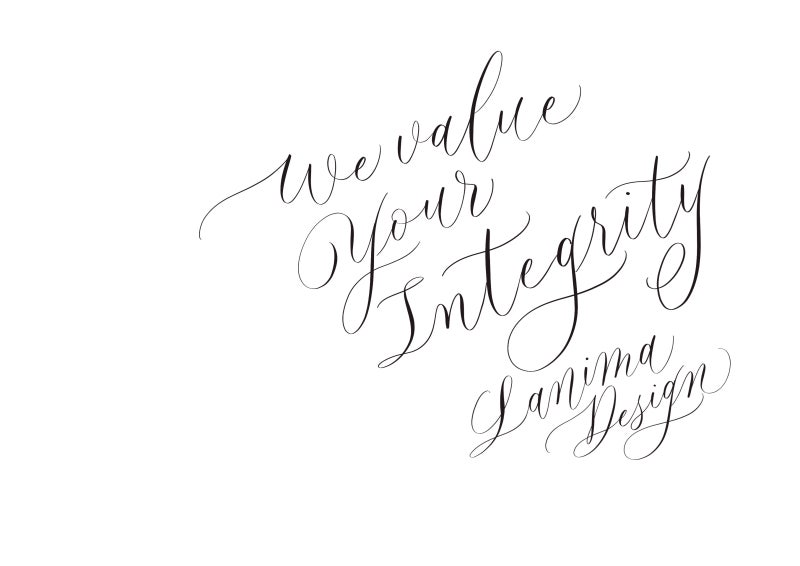 We value
Your
Integrity
Lanima
Design